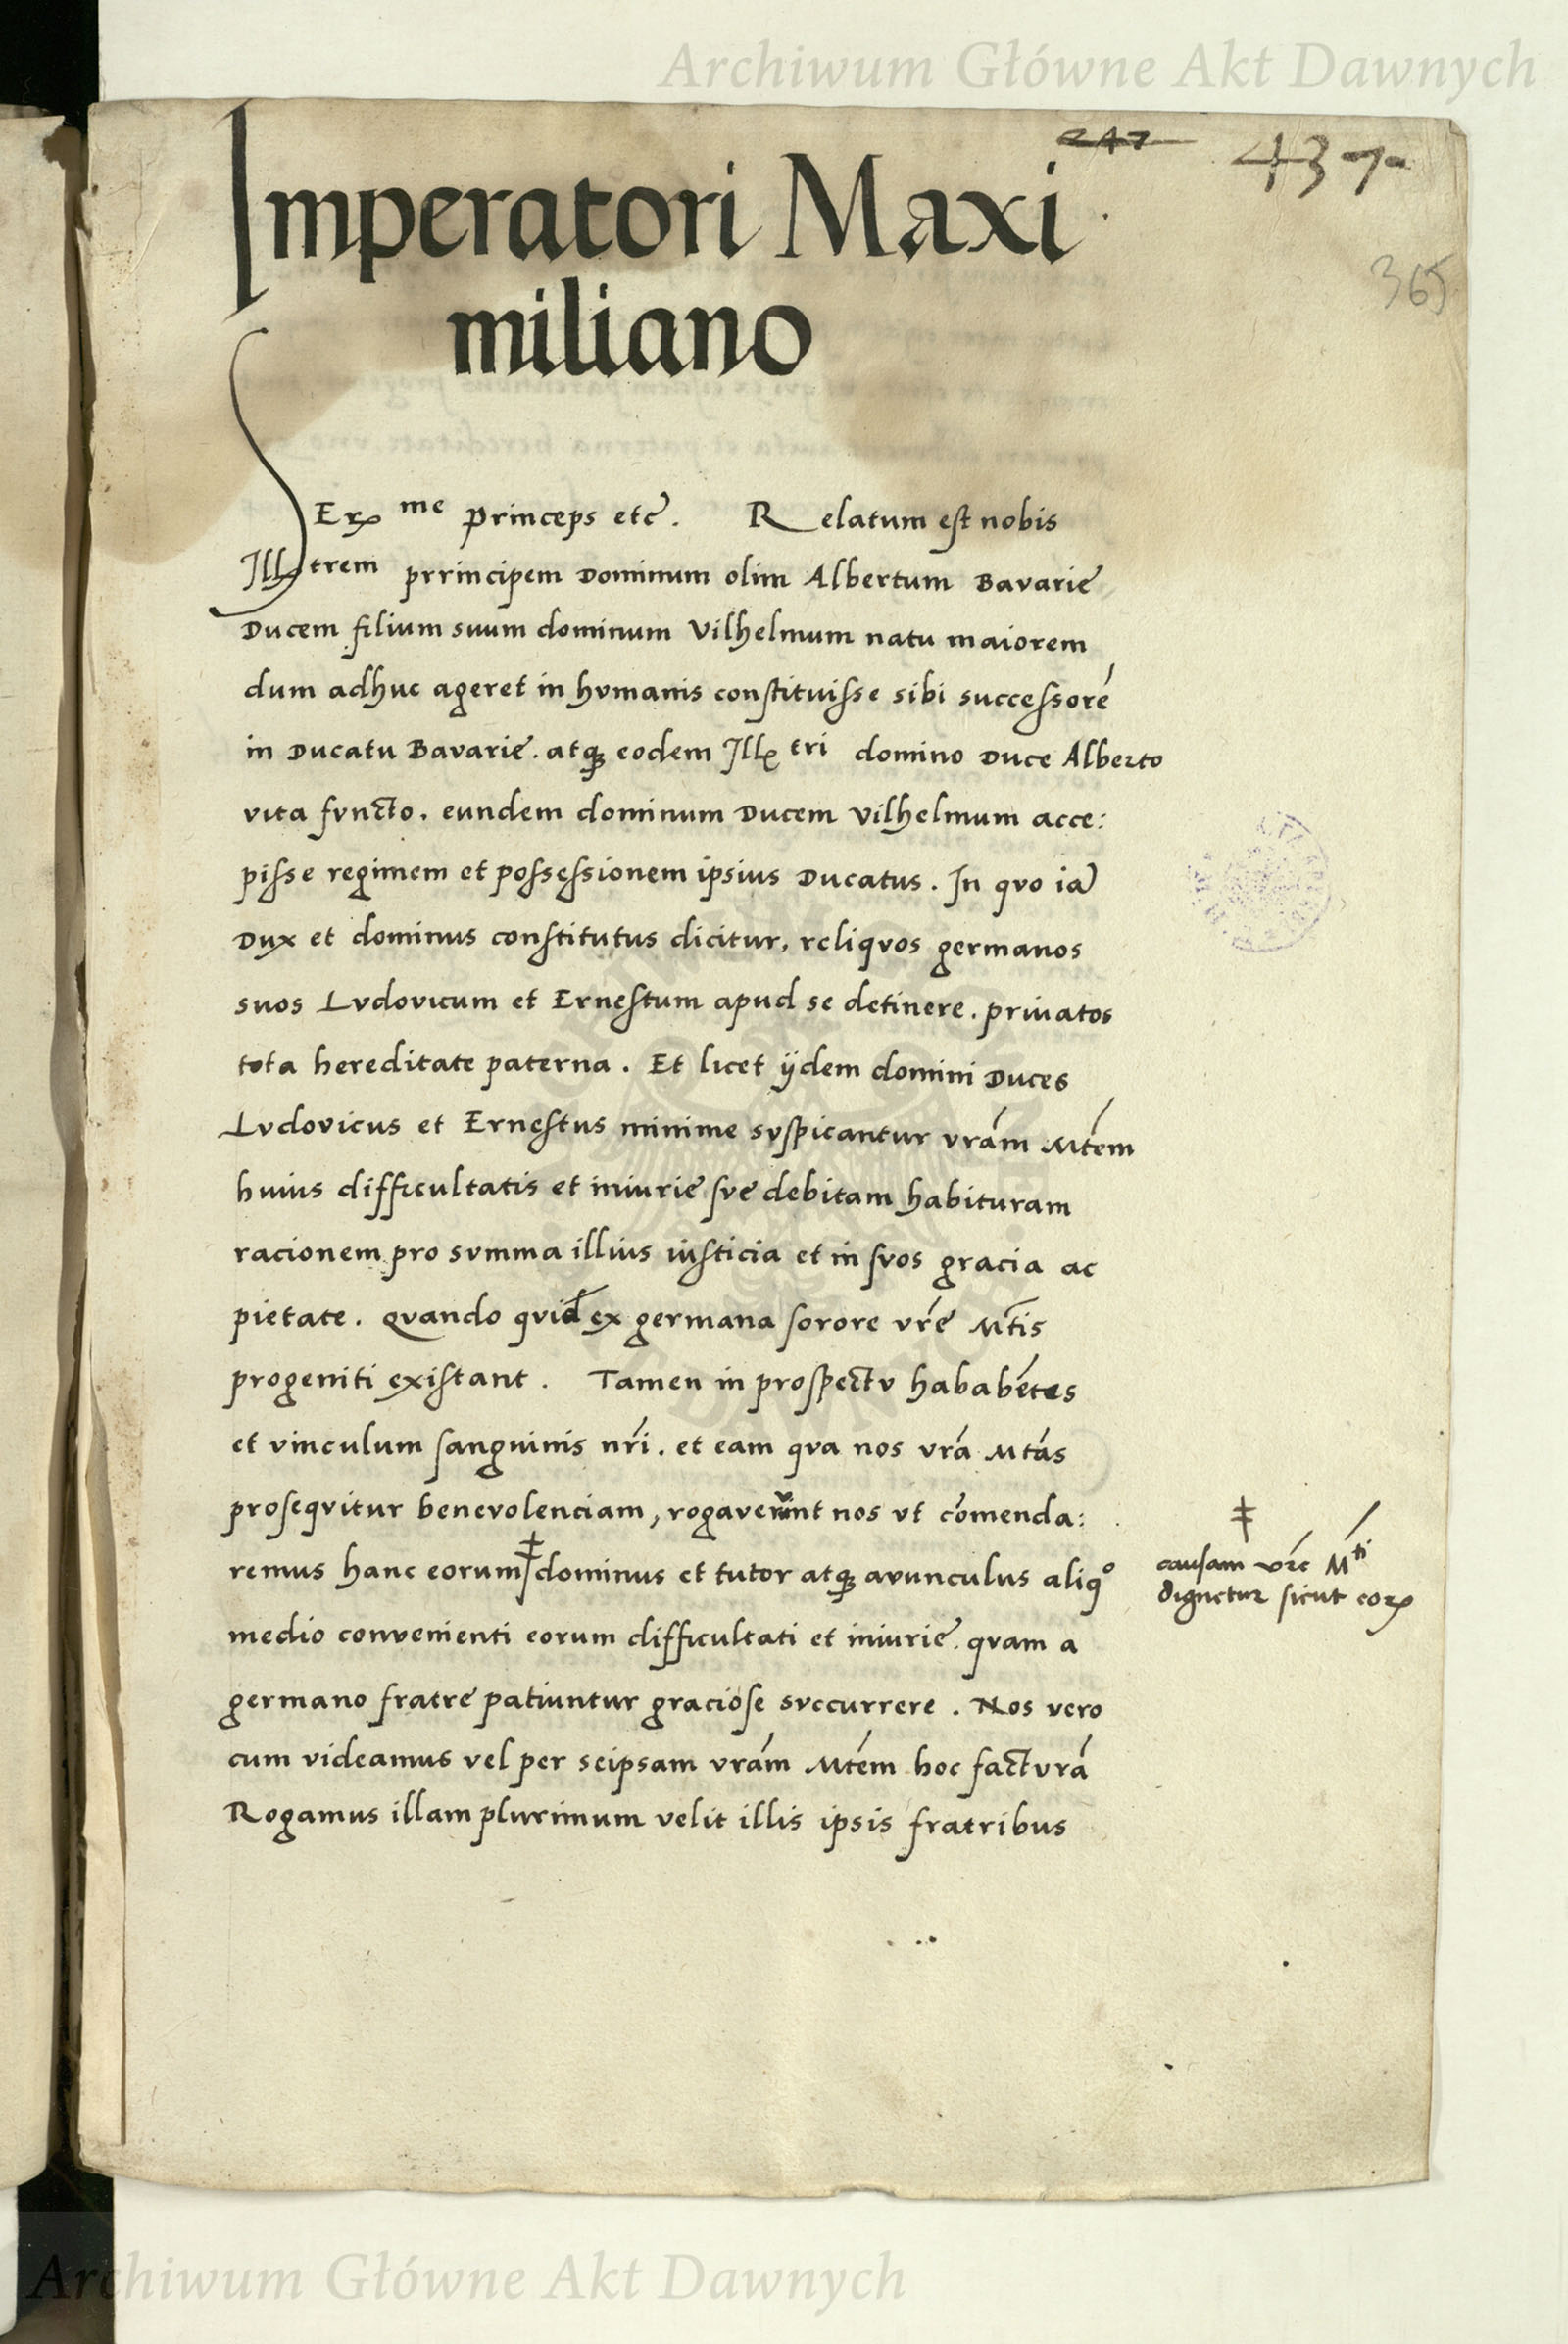 Archiwum Główne Akt Dawnych
247
437
365
Imperatori Maxi
miliano
SErꝫ me princeps etc̃. Relatum est nobis
Illꝫ trem prrincipem Dominum olim Albertum Bavarie
Ducem filium suum dominum Vilhelmum natu maiorem
dum adhuc ageret in hvmanis constituisse sibi successorē
in Ducatu Bavarie. atqꝫ eodem Illꝫ tri domino Duce Alberto
vita fvncto. eundem dominum Ducem Vilhelmum acce:
pisse regimem et possessionem ipsius Ducatus. In qvo iā
Dux et dominus constitutus dicitur, reliqvos germanos
suos Lvdovicum et Ernestum apud se detinere. priuatos
tota hereditate paterna. Et licet ijdem domini Duces
Lvdovicus et Ernestus minime svspicantur vrām Mtēm
huius difficultatis et iniurie sve debitam habituram
racionem pro svmma illius iusticia et in svos gracia ac
pietate. Qvando qvid ex germana sorore vr̄e Mt̄is
progeniti existant. Tamen in prospectv hababēntes
et vinculum sanguinis nr̄i. et eam qva nos vrā Mtās
proseqvitur benevolenciam, rogaverunt nos vt cōmenda:
remus hanc eorum ‡ dominus et tutor atqꝫ avunculus aliqº
medio convenienti eorum difficultati et iniurie. qvam a
germano fratre patiuntur graciose svccurrere. Nos vero
cum videamus vel per seipsam vrām Mtēm hoc factvrā
Rogamus illam plurimum velit illis ipsis fratribus
‡
causam vr̄e Mti
dignetur sicut eorꝫ
Archiwum Główne Akt Dawnych